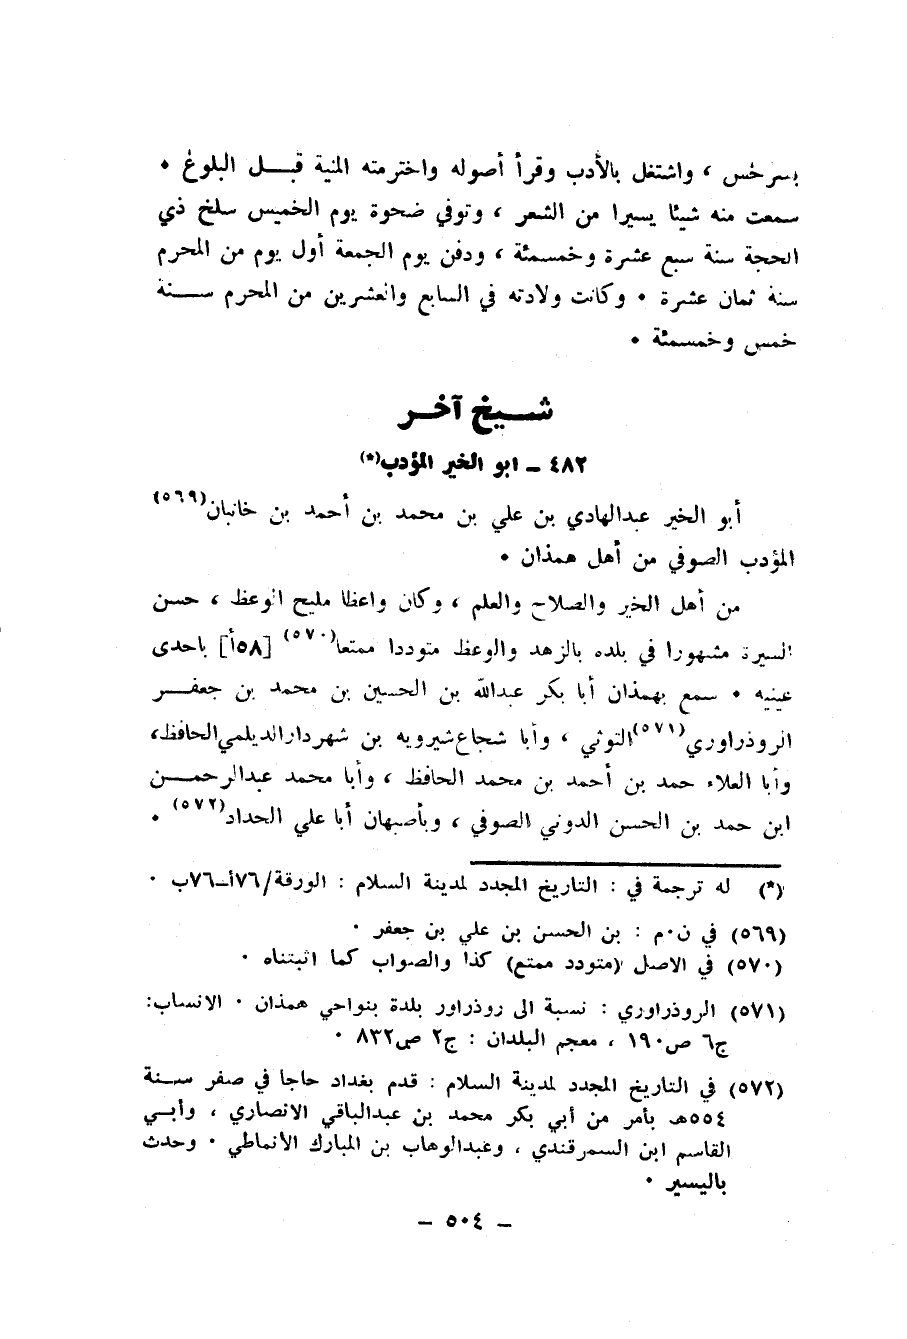 بسرخس ، واشتغل بالأدب وقرأ أصوله واخترمته المنية قبــل البلوغ ٠
سمعت منه شيئا يسيرا من الشعر ، وتوفي ضحوة يوم الخميس سلخ ذي
الحجة سنة سبع عشرة وخمسمئة ، ودفن يوم الجمعة أول يوم من المحرم
سنة ثمان عشرة ٠ وكانت ولادته في السابع والعشرين من المحرم ســنة
خمس وخمسمئة ٠
شــيخ آخــر
٤٨٢ ــ ابو الخير المؤدب(*)
أبو الخير عبدالهادي بن علي بن محمد بن أحمد بن خانبان(٥٦٩)
المؤدب الصوفي من أهل همذان ٠
من أهل الخير والصلاح والعلم ، وكان واعظا مليح الوعظ ، حسن
السيرة مشهورا في بلده بالزهد والوعظ متوددا ممتعا(٥٧٠) [٥٨أ] باحدى
عينيه ٠ سمع بهمذان أبا بكر عبدالله بن الحسين بن محمد بن جعفــر
الروذراوري(٥٧١)التوثي ، وأبا شجاع شيرويه بن شهردار الديلمي الحافظ،
وأبا العلاء حمد بن أحمد بن محمد الحافظ ، وأبا محمد عبدالرحمــن
ابن حمد بن الحسن الدوني الصوفي ، وبأصبهان أبا علي الحداد(٥٧٢) ٠
(*) له ترجمة في : التاريخ المجدد لمدينة السلام : الورقة/٧٦أــ٧٦ب ٠
(٥٦٩) في ن٠م : بن الحسن بن علي بن جعفر ٠
(٥٧٠) في الاصل (متودد ممتع) كذا والصواب كما اثبتناه ٠
(٥٧١) الروذراوري : نسبة الى روذراور بلدة بنواحي همذان ٠ الانساب:
ج٦ ص١٩٠ ، معجم البلدان : ج٢ ص٨٣٢ ٠
(٥٧٢) في التاريخ المجدد لمدينة السلام : قدم بغداد حاجا في صفر ســنة
٥٥٤هـ بأمر من أبي بكر محمد بن عبدالباقي الانصاري ، وأبــي
القاسم ابن السمرقندي ، وعبدالوهاب بن المبارك الأنماطي ٠ وحدث
باليسير ٠
ــ ٥٠٤ ــ